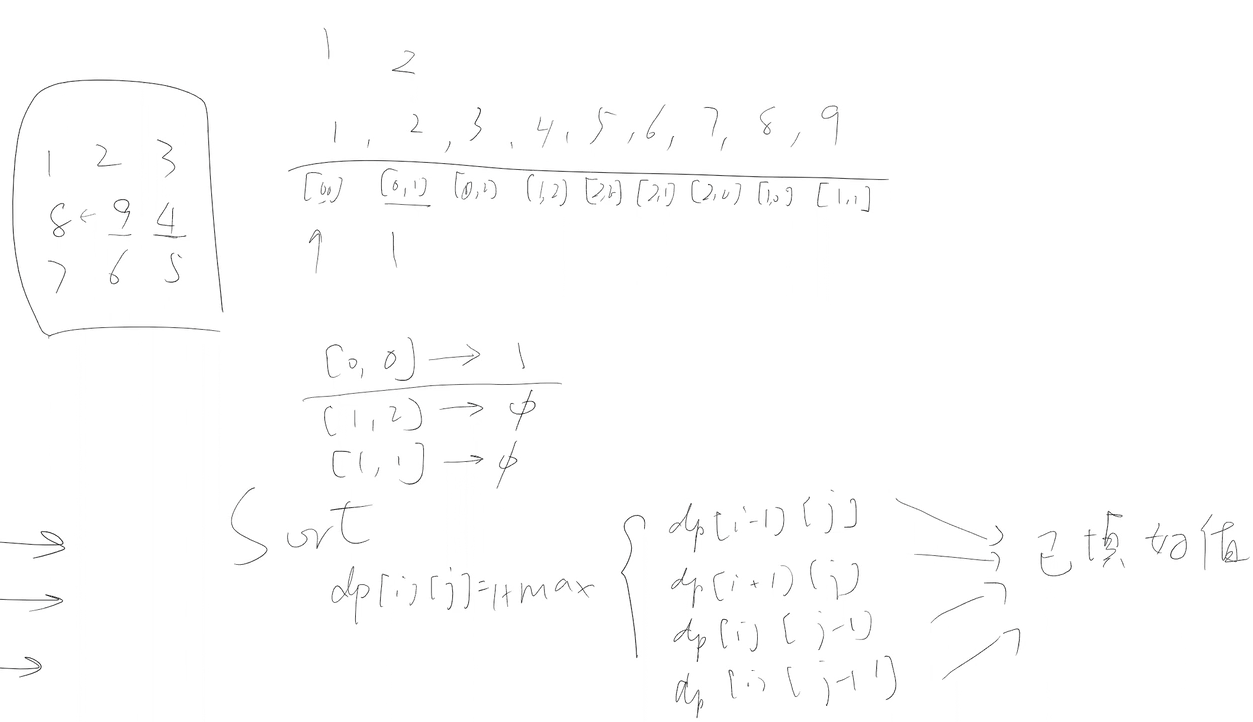 1 2
1, 2, 3, 4, 5, 6, 7, 8, 9
[0,0] [0,1] [0,2] [1,2] [2,2] [2,1] [2,0] [1,0] [1,1]
1 2 3
8 ← 9 4
7 6 5
1
[0, 0] → 1
[1, 2] → φ
[1, 1] → φ
Sort
dp[i][j]=1+max
dp[i-1][j]
dp[i+1][j]
dp[i][j-1]
dp[i][j+1]
已填好值